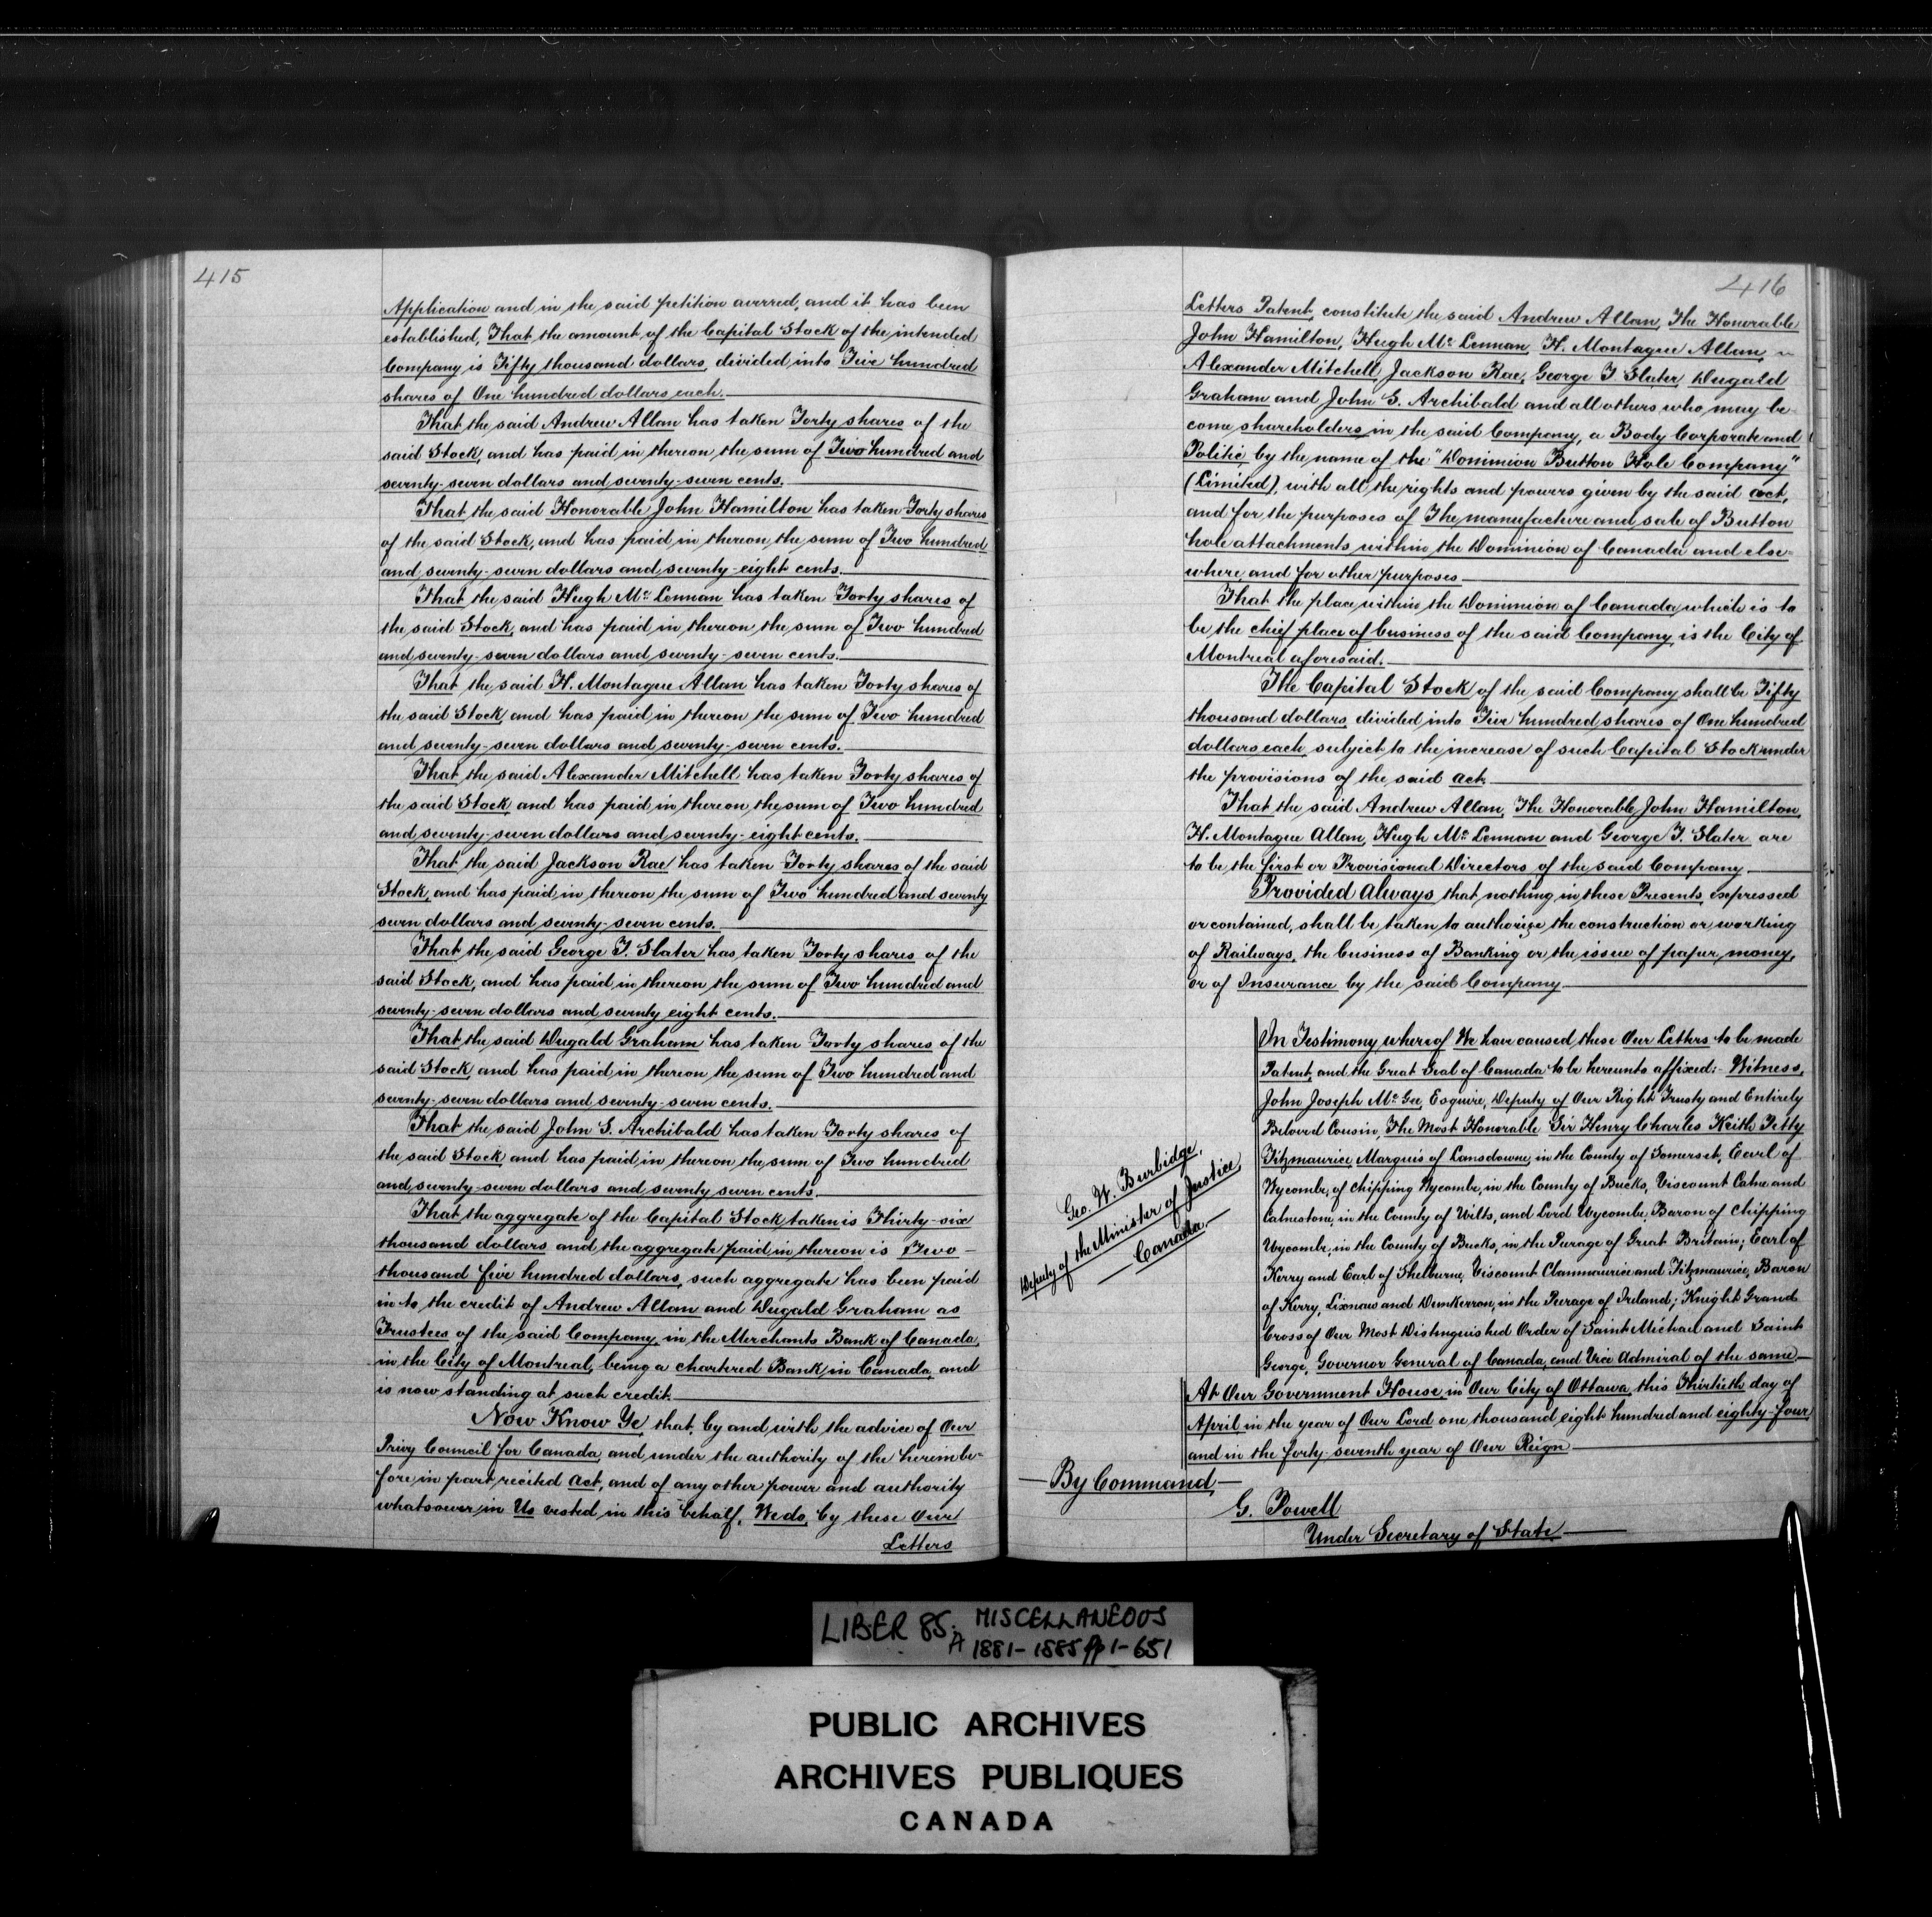 415
Application and in the said petition averred, and it has been
established, That the amount of the Capital Stock of the intended
Company is Fifty thousand dollars, divided into Five hundred
shares of One hundred dollars each.
That the said Andrew Allan has taken Forty shares of the
said Stock, and has paid in thereon, the sum of Two hundred and
seventy-seven dollars and seventy-seven cents.
That the said Honorable John Hamilton has taken Forty shares
of the said Stock, and has paid in thereon, the sum of Two hundred
and seventy-seven dollars and seventy-eight cents.
That the said Hugh Mc Lennan has taken Forty shares of
the said Stock, and has paid in thereon the sum of Two hundred
and seventy-seven dollars and seventy-seven cents.
That the said H. Montague Allan has taken Forty shares of
the said Stock and has paid in thereon the sum of Two hundred
and seventy-seven dollars and seventy-seven cents.
That the said Alexander Mitchell has taken Forty shares of
the said Stock, and has paid in thereon the sum of Two hundred
and seventy-seven dollars and seventy-eight cents.
That the said Jackson Rae has taken Forty shares of the said
Stock, and has paid in thereon the sum of Two hundred and seventy
seven dollars and seventy-seven cents.
That the said George T. Slater has taken Forty shares of the
said Stock, and has paid in thereon the sum of Two hundred and
seventy-seven dollars and seventy eight cents.
That the said Dugald Graham has taken Forty shares of the
said Stock, and has paid in thereon the sum of Two hundred and
seventy-seven dollars and seventy-seven cents.
That the said John S. Archibald has taken Forty shares of
the said Stock and has paid in thereon the sum of Two hundred
and seventy-seven dollars and seventy seven cents.
That the aggregate of the Capital Stock taken is Thirty-six
thousand dollars and the aggregate paid in thereon is Two-
thousand five hundred dollars, such aggregate has been paid
in to the credit of Andrew Allan and Dugald Graham as
Trustees of the said Company, in the Merchants Bank of Canada,
in the City of Montreal, being a chartered Bank in Canada, and
is now standing at such credit.
Now Know Ye, that, by and with the advice of Our
Privy Council for Canada, and under the authority of the hereinbe-
fore in part recited Act, and of any other power and authority
whatsoever in Us vested in this behalf, We do, by these Our
Letters
416
Letters Patent, constitute the said Andrew Allan, The Honorable
John Hamilton, Hugh Mc Lennan, H. Montague Allan,
Alexander Mitchell, Jackson Rae, George T. Slater, Dugald
Graham and John S. Archibald and all others who may be-
come shareholders in the said Company, a Body Corporate and
Politic, by the name of the "Dominion Button Hole Company"
(Limited), with all the rights and powers given by the said Act,
and for the purposes of The manufacture and sale of Button
hole attachments within the Dominion of Canada and else-
where, and for other purposes
That the place within the Dominion of Canada, which is to
be the chief place of business of the said Company, is the City of
Montreal aforesaid.
The Capital Stock of the said Company shall be Fifty
thousand dollars, divided into Five hundred shares of One hundred
dollars each, subject to the increase of such Capital Stock under
the provisions of the said Act.
That the said Andrew Allan, The Honorable John Hamilton,
H. Montague Allan, Hugh Mc Lennan and George T. Slater are
to be the first or Provisional Directors of the said Company
Provided Always that nothing in these Presents, expressed
or contained, shall be taken to authorize the construction or working
of Railways, the business of Banking or the issue of paper money,
or of Insurance by the said Company
In Testimony whereof We have caused these Our Letters to be made
Patent, and the Great Seal of Canada to be hereunto affixed:- Witness,
John Joseph Mc Gee, Esquire, Deputy of Our Right Trusty and Entirely
Beloved Cousin, The Most Honorable Sir Henry Charles Keith Petty
Fitzmaurice, Marquis of Lansdowne, in the County of Somerset, Earl of
Wycombe, of Chipping Wycombe, in the County of Bucks, Viscount Calne and
Calnestone, in the County of Wilts, and Lord Wycombe, Baron of Chipping
Wycombe, in the County of Bucks, in the Peerage of Great Britain; Earl of
Kerry and Earl of Shelburne, Viscount Clanmaurice and Fitzmaurice, Baron
of Kerry, Lixnaw and Dunkerron, in the Peerage of Ireland; Knight Grand
Cross of Our Most Distinguished Order of Saint Michael and Saint
George, Governor General of Canada, and Vice Admiral of the same
At Our Government House, in Our City of Ottawa, this Thirtieth day of
April in the year of Our Lord one thousand eight hundred and eighty-four
and in the forty-seventh year of Our Reign
Geo. W. Burbidge,
Deputy of the Minister of Justice
Canada.
By Command
G. Powell
Under Secretary of State
LIBER 85. MISCELLANEOUS
A 1881-1885 pp 1-651
PUBLIC ARCHIVES
ARCHIVES PUBLIQUES
CANADA